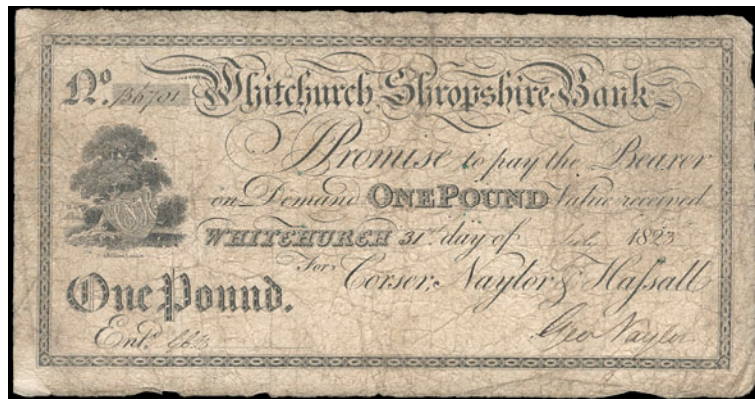 No. B6701 Whitchurch Shropshire Bank
Promise to pay the Bearer
on Demand ONE POUND Value received
WHITCHURCH 31st day of July 1823
For Corser, Naylor & Hassall
One Pound.
Entd.
Geo Naylor